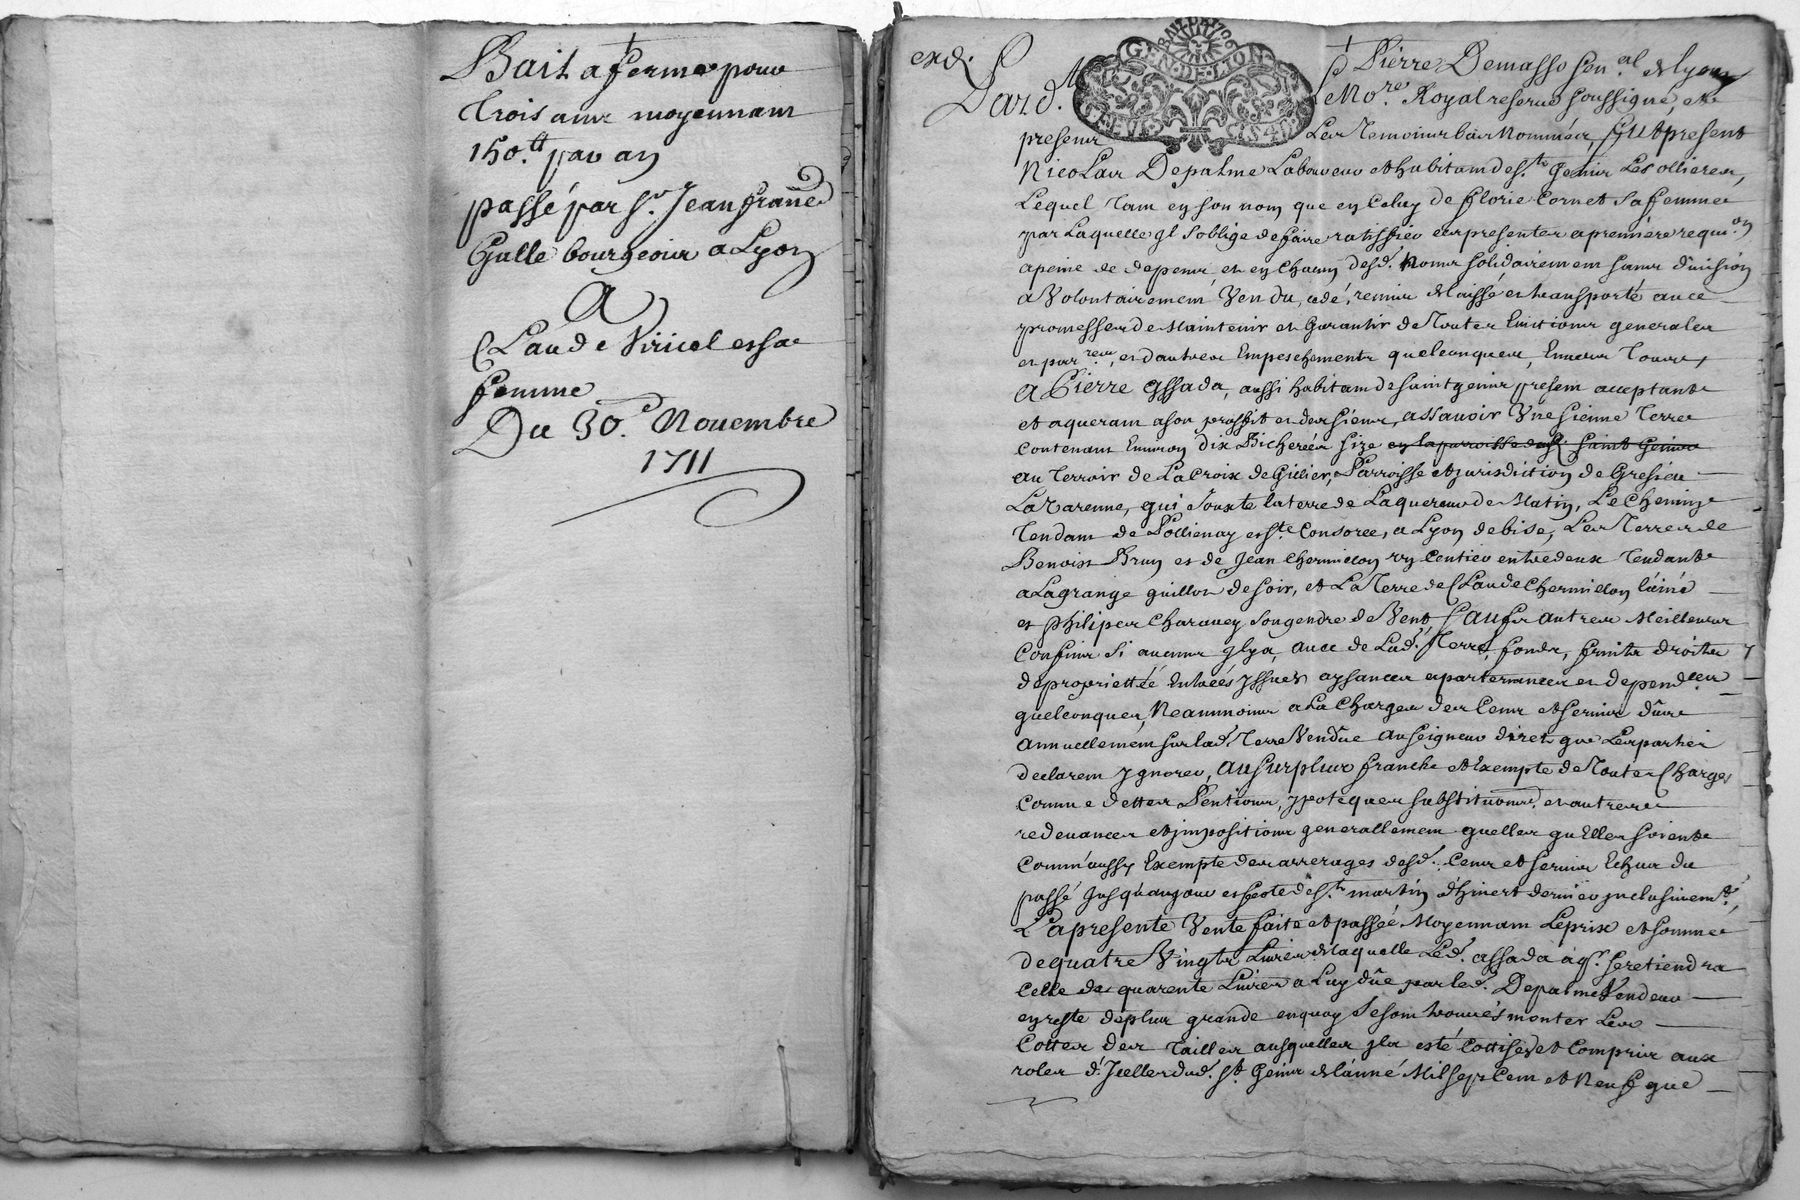 Bail a ferme pour
trois ans moyennant
150.tt par an
passé par Sr. Jean franc
Gulle bourgeois a Lyon
A
Claude Viricel et sa
femme
Du 30.e Novembre
1711
exd.
Pard.
GEN·DE·LION
Pierre Demasso sen.al de lyon
Royal reservé soussigné, et
presens Les temoins bas Nommés, fut present
Nicolas Depalme Laboureur et habitant de St. Genis Les ollieres,
Lequel tant en son nom que en Celuy de florie Cornet Sa femme
par Laquelle il s'oblige de faire ratiffier et presenter a premiere requi.on
a peine de depens, et en Chacun desd. Noms solidairement sans division
a Volontairement Vendu, cedé, remis delaissé et transporté avec
promesses de Maintenir et Garantir de toutes Evictions generales
et par.res, et d'autres Empeschements quelconques, Envers tous,
A Pierre assada, aussi habitant de saint genis present acceptant
et aquerant a son proffit et des siens, assavoir Une sienne Terre
Contenant Environ dix Bicherées size en la parroisse dud. saint Genis
au Terroir de La Croix de Gillier, Parroisse et jurisdiction de Gresieu
La Varenne, qui Jouxte la terre de Laquereur de Matin, Le Chemin
Tendant de Pollienay et Ste. Consorce, a Lyon de bise, Les Terres de
Benoist Brun et de Jean Chermillon un sentier entre deux Tendant
a Lagrange guillon de soir, et La Terre de Claude Chermillon l'ainé
et Philipes Charavey son gendre de Vent, Sauf autres Meilleurs
Confins si aucuns il y a, avec de Lad. Terre, fonds, fruits droits
de proprietté Entrées yssues aysances apartenances et depend.ces
quelconques, Neanmoins a La Charge des Cens et servis dûs
annuellement sur lad. Terre Vendüe au seigneur direct que Les parties
declarent ygnorer, au surplus franche et Exempte de Toutes Charges
Comme dettes Pentions, ypoteques substitutions et autres
redevances et jmpositions generallement quelles qu'Elles soient
Comm'aussy Exempte des arrerages desd. Cens et servis Echus du
passé Jusqu'au jour et feste de St. martin d'hivert dernier jnclusivem.t,
La presente Vente faite et passée Moyennant Le prix et somme
de quatre Vingts Livres de laquelle Led. assada aq.r se retiendra
Celle de quarente Livres a Luy düe par led. Depalme Vendeur
en reste de plus grande en quoy se sont trouvés monter Les
Cottes des Tailles ausquelles jl a esté Cottisé et Compris aux
roles d'Jcelles dud. St. Genis de l'anné Mil sept Cent et Neuf que